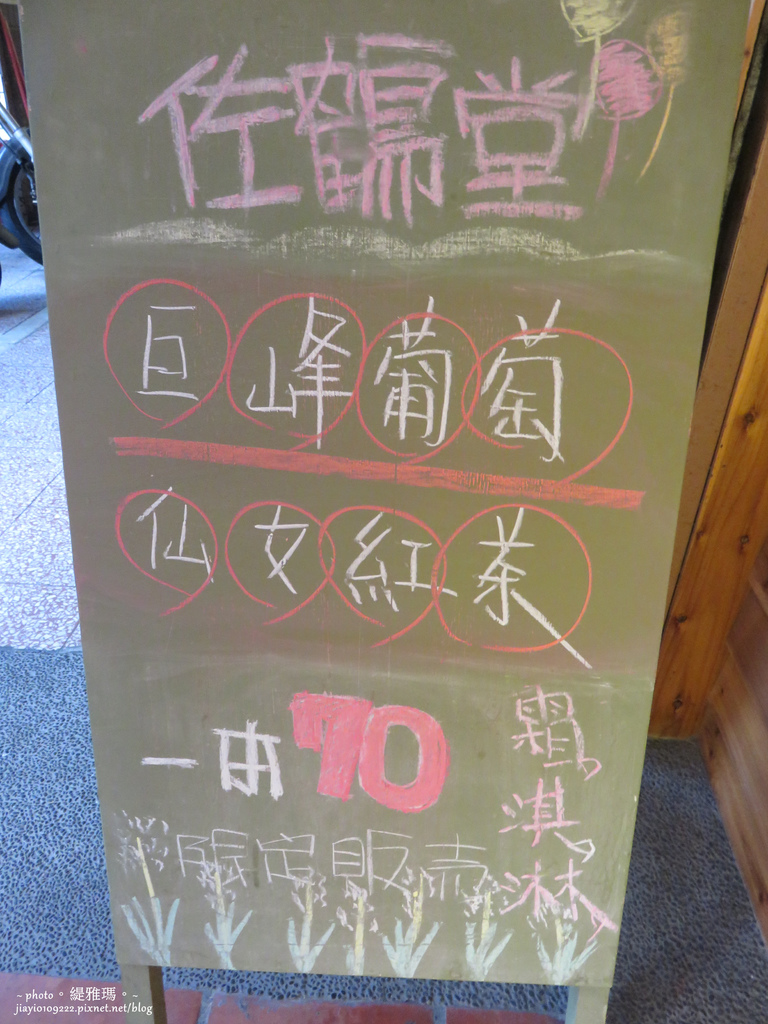 佐鶴堂
巨峰葡萄
仙女紅茶
一本70
霜淇淋
限定販売
~ photo。緹雅瑪。~
jiayio109222.pixnet.net/blog